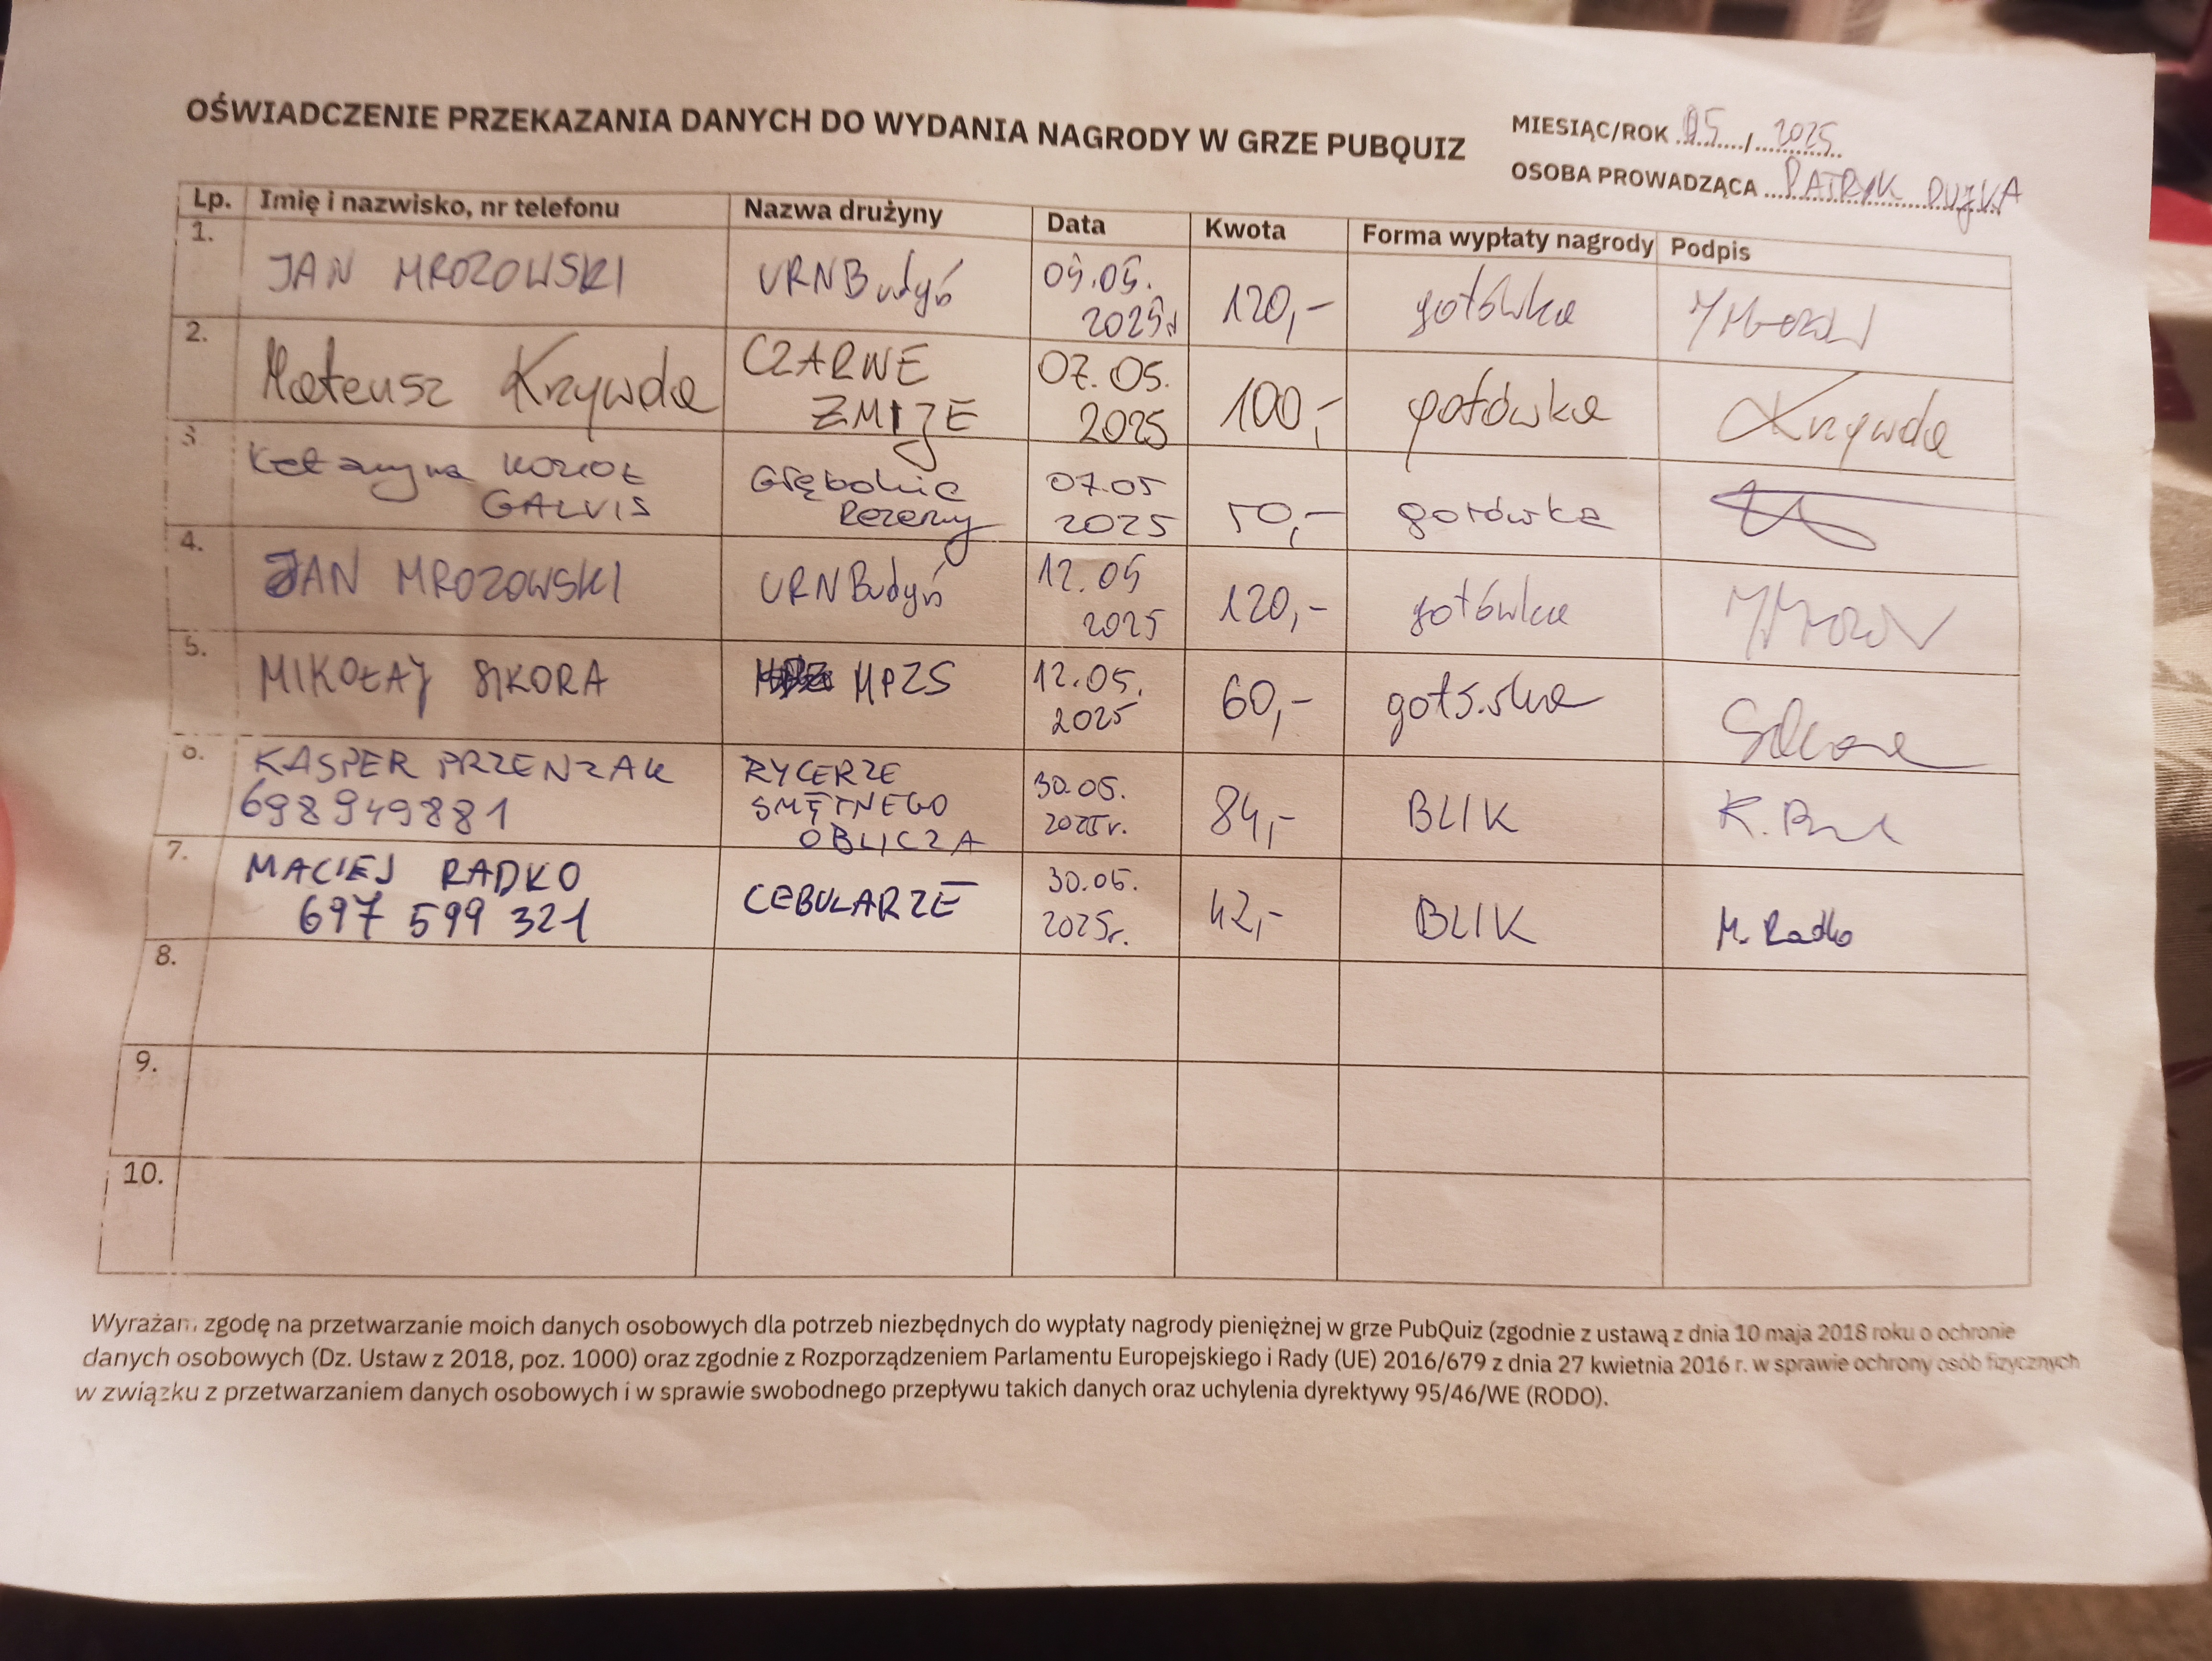 OŚWIADCZENIE PRZEKAZANIA DANYCH DO WYDANIA NAGRODY W GRZE PUBQUIZ
MIESIĄC/ROK 05 / 2025
OSOBA PROWADZĄCA PATRYK
Lp. Imię i nazwisko, nr telefonu Nazwa drużyny Data Kwota Forma wypłaty nagrody Podpis
1. JAN MROZOWSKI URNBudyń 05.05. 2025r 120,- gotówka
2. Mateusz Krzywda CZARNE ŻMIJE 07.05. 2025 100,- gotówka Krzywda
3 Katarzyna KOZIOŁ GALVIS Głębokie Rezerwy 07.05 2025 50,- gotówka
4. JAN MROZOWSKI URNBudyń 12.05 2025 120,- gotówka
5. MIKOŁAJ SIKORA MPZS 12.05. 2025 60,- gotówka Sikora
6. KASPER PRZENZAK 698949881 RYCERZE SMĘTNEGO OBLICZA 30.05. 2025r. 84,- BLIK
7. MACIEJ RADKO 697 599 321 CEBULARZE 30.05. 2025r. 42,- BLIK M. Radko
8.
9.
10.
Wyrażam zgodę na przetwarzanie moich danych osobowych dla potrzeb niezbędnych do wypłaty nagrody pieniężnej w grze PubQuiz (zgodnie z ustawą z dnia 10 maja 2018 roku o ochronie
danych osobowych (Dz. Ustaw z 2018, poz. 1000) oraz zgodnie z Rozporządzeniem Parlamentu Europejskiego i Rady (UE) 2016/679 z dnia 27 kwietnia 2016 r. w sprawie ochrony osób fizycznych
w związku z przetwarzaniem danych osobowych i w sprawie swobodnego przepływu takich danych oraz uchylenia dyrektywy 95/46/WE (RODO).